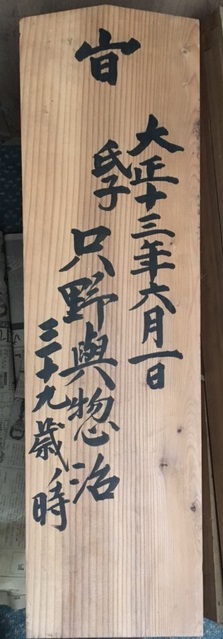 大正十三年六月一日
氏子
只野與惣治
三十九歳ノ時